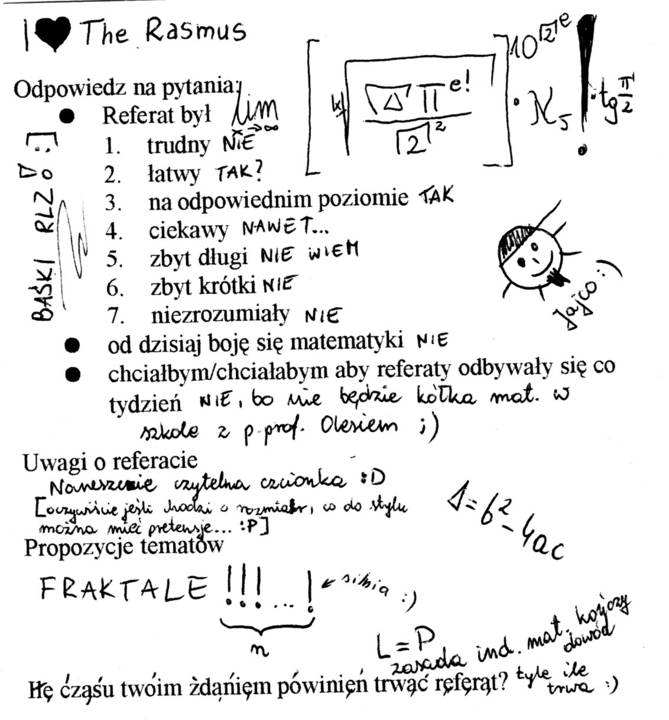 I ♥ The Rasmus
Odpowiedz na pytania:
● Referat był
lim
x→∞
[ \sqrt[|x|]{\frac{\sqrt{Δ} π^{e!}}{\sqrt{2}^2}} ]^{10^{\sqrt{2}^e}} · ℵ₅ ! · tg π/2
1. trudny NIE
2. łatwy TAK?
3. na odpowiednim poziomie TAK
4. ciekawy NAWET...
5. zbyt długi NIE WIEM
6. zbyt krótki NIE
7. niezrozumiały NIE
BAŚKI RLZ
Jajco :)
● od dzisiaj boję się matematyki NIE
● chciałbym/chciałabym aby referaty odbywały się co
tydzień NIE, bo nie będzie kółka mat. w
szkole z p. prof. Olesiem ;)
Uwagi o referacie
Nareszcie czytelna czcionka :D
[oczywiście jeśli chodzi o rozmiar, co do stylu
można mieć pretensje... :P]
Δ=b²-4ac
Propozycje tematów
FRAKTALE !!!...! ← silnia :)
n
L=P
zasada ind. mat. kończy
dowód
Ilę ćząśu twoim żdąńięm pówinięń trwąć ręfęrąt? tyle ile
trwa :)